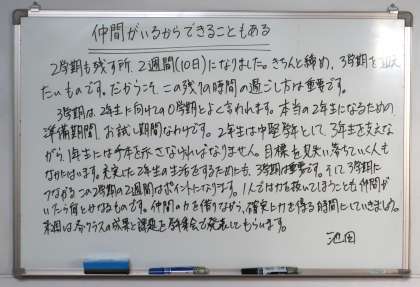 仲間がいるからできることもある
2学期も残す所、2週間(10日)になりました。きちんと締め、3学期を迎え
たいものです。だからこそ、この残り10時間の過ごし方は重要です。
3学期は、2年生に向けての0学期とよく言われます。本当の2年生になるための
準備期間、お試し期間なわけです。2年生は中堅学年として、3年生を支えな
がら、1年生には手本を示さなければなりません。目標を見失い落ちていく人も
なかにはいます。充実した2年生の生活をするためにも、3学期は重要です。そして3学期に
つながるこの2学期の2週間はポイントになります。1人では力を抜いてしまうことも仲間が
いたら何とかなるものです。仲間の力を借りながら、確実に力を得る時間にしていきましょう。
末週は、各クラスの成果と課題を学年集会で発表してもらいます。
池田